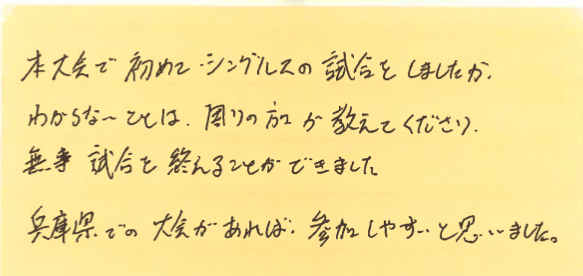 本大会で初めて、シングルスの試合をしましたが、
わからないことは、周りの方が教えてくださり、
無事 試合を終えることができました
兵庫県での大会があれば、参加しやすいと思いました。